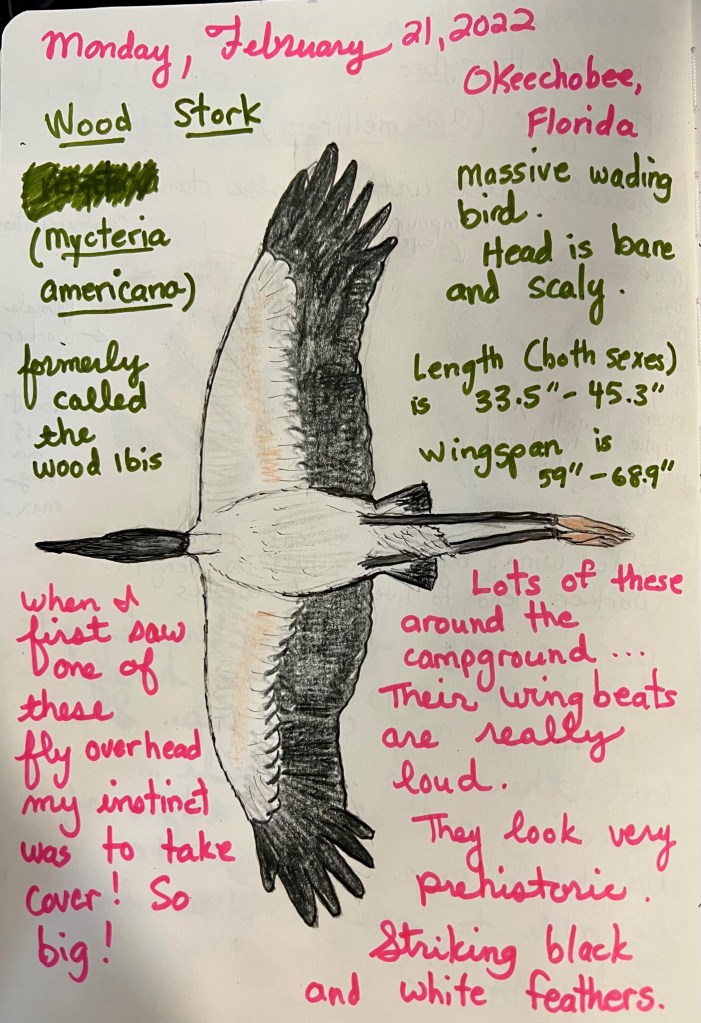 Monday, February 21, 2022
Okeechobee,
Florida
Wood Stork
(Mycteria
americana)
formerly
called
the
wood Ibis
Massive wading
bird.
Head is bare
and scaly.
Length (both sexes)
is 33.5"-45.3"
Wingspan is
59"-68.9"
When I
first saw
one of
these
fly overhead
my instinct
was to take
cover! So
big!
Lots of these
around the
campground ...
Their wingbeats
are really
loud.
They look very
prehistoric.
Striking black
and white feathers.